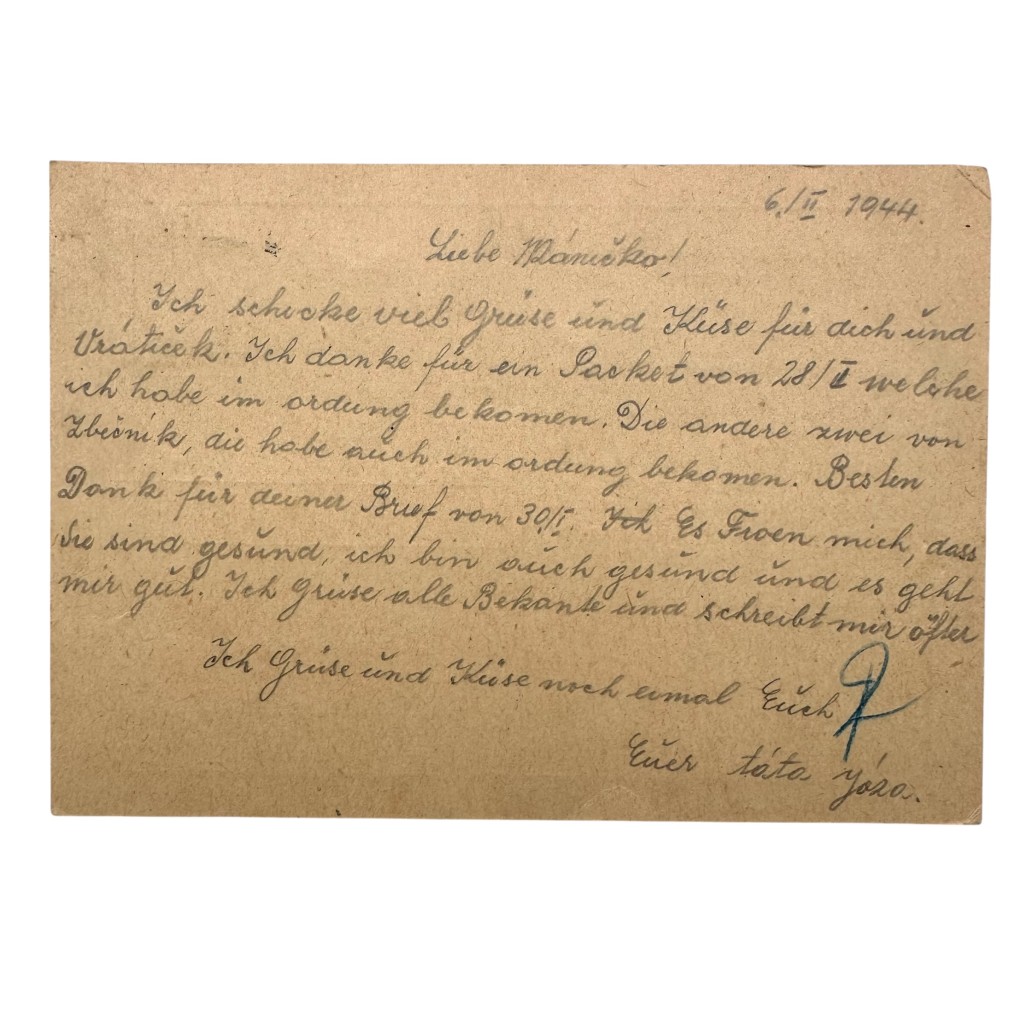 6./II 1944.
Liebe Máničko!
Ich schicke viel Grüse und Küse für dich und
Vráťiček. Ich danke für ein Packet von 28/II welche
ich habe im ordung bekomen. Die andere zwei von
Zbečník, die habe auch im ordung bekomen. Besten
Dank für deiner Brief von 30/I. Ich Es Froen mich, dass
Sie sind gesund, ich bin auch gesund und es geht
mir gut. Ich Grüse alle Bekante und schreibt mir öfter
Ich Grüse und Küse noch einmal Euch
Euer táta Józa.